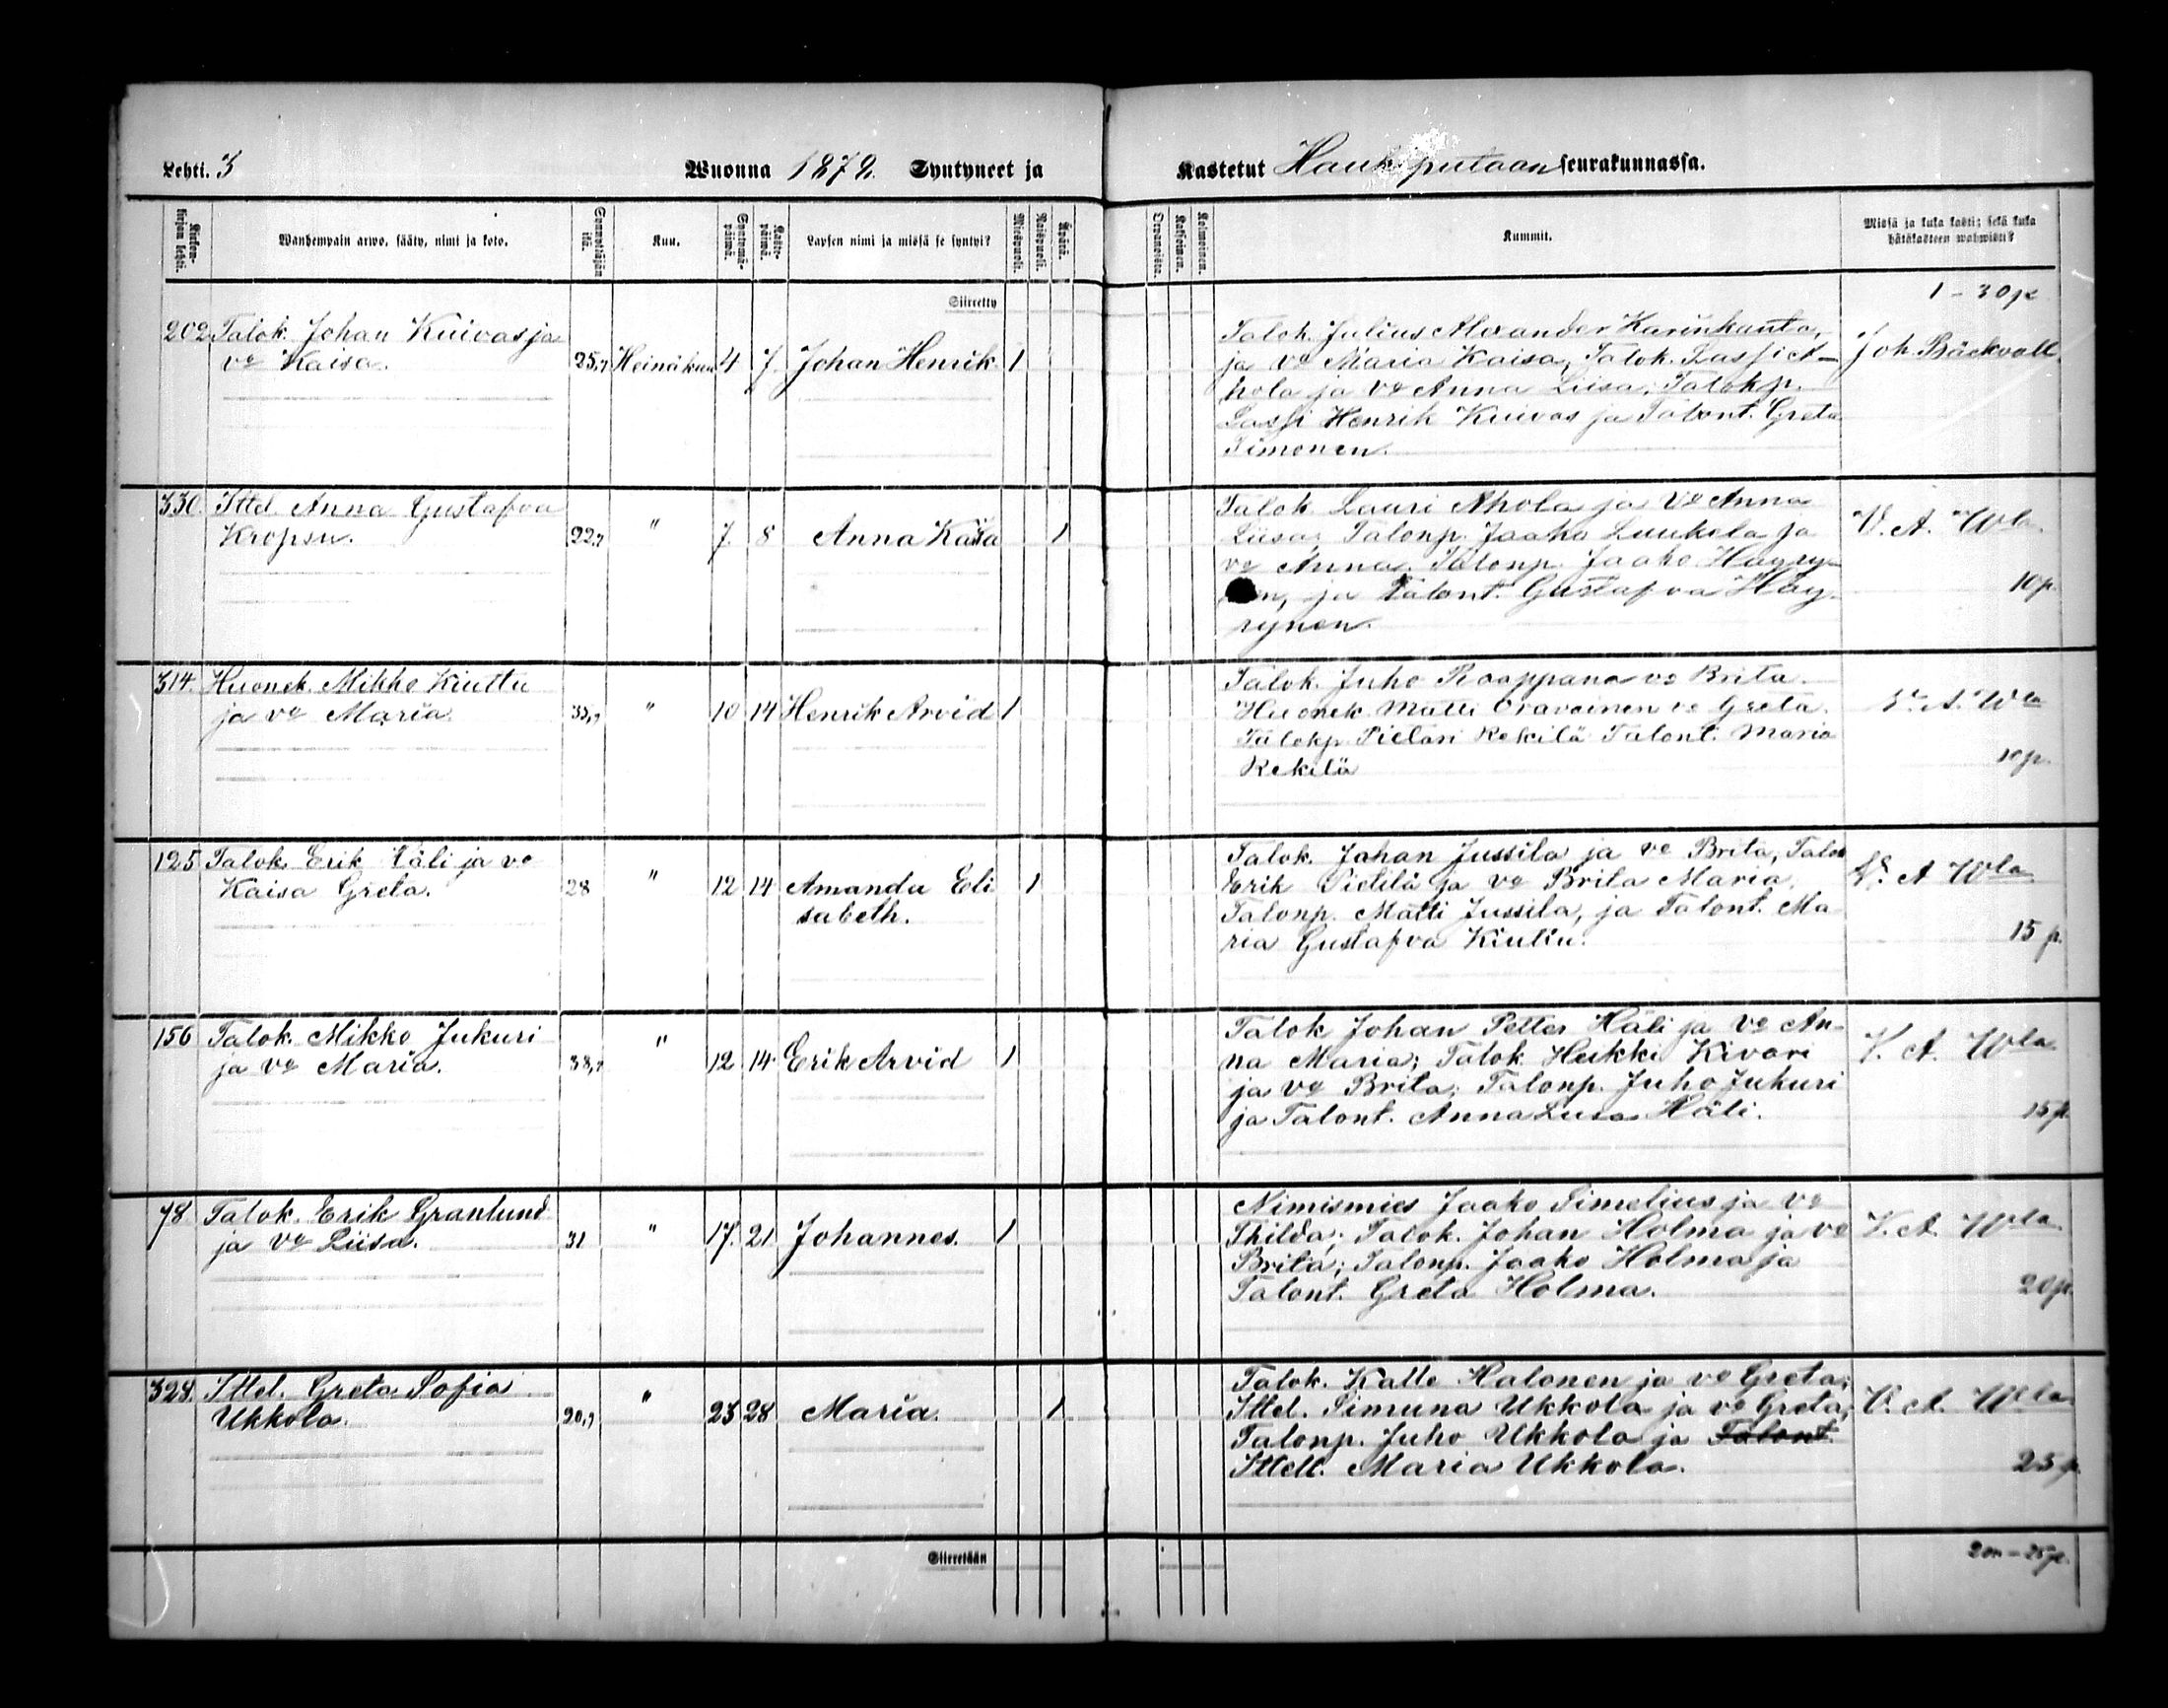 Lehti. 3
Wuonna 1879. Syntyneet ja
Kastetut Haukiputaan seurakunnassa.
Kirkon-kirjan lehti.
Wanhempain arwo, sääty, nimi ja koto.
Kuu.
Syntymä-päiwä.
Kaste-päiwä.
Lapsen nimi ja missä se syntyi?
Miespuoli.
Waispuoli.
Äpärä.
Kaksoinen.
Kolmoinen.
Kummit.
Missä ja kuka kasti; sekä kuka
hätäkasteen wahwisti?
Siirretty
1 - 30 p.
202 Talok. Johan Kuivas ja
vo Kaisa.
25,7 Heinäkuu 4 7. Johan Henrik 1
Taloh. Julius Alexander Karinkanta,
ja vo Maria Kaisa, Talok. Lassi A-
hola ja vo Anna Liisa; Talokp.
Lassi Henrik Kuivas ja Talont. Greta
Timonen.
Joh. Bäckvall.
330. Ittel. Anna Gustafva
Kropsu.
22,7 " 7. 8 Anna Kaisa 1
Talok Lauri Ahola ja vo Anna
Liisa; Talonp. Jaako Luukela ja
vo Anna. Talonp. Jaako Häyry-
en, ja Talont. Gustafva Häy-
rynen.
V. A. Wla.
10 p.
314. Huonek. Mikko Kiuttu
ja vo Maria.
35,7 " 10 14 Henrik Arvid 1
Talok. Juho Raappana vo Brita.
Huonek. Matti Oravainen vo Greta.
Talokp. Pietari Kekilä Talont. Maria
Kekilä
V. A. Wla
10 p.
125 Talok. Erik Häli ja vo
Kaisa Greta.
28 " 12 14 Amanda Eli
sabeth. 1
Talok. Johan Jussila ja vo Brita, Talok
Erik Pietilä ja vo Brita Maria,
Talonp. Matti Jussila, ja Talont. Ma
ria Gustafva Kiuttu.
V. A Wla
15 p.
156 Talok. Mikko Jukuri
ja vo Maria.
38,7 " 12 14 Erik Arvid 1
Talok Johan Petter Häli ja vo An-
na Maria; Talok Heikki Kivari
ja vo Brita; Talonp. Juho Jukuri
ja Talont. Anna Liisa Häli.
V. A. Wla.
15 p.
78. Talok. Erik Granlund
ja vo Liisa.
31 " 17. 21 Johannes. 1
Nimismies Jaako Simelius ja vo
Thilda; Talok. Johan Holma ja vo
Brita; Talonp. Jaako Holma ja
Talont. Greta Holma.
V. A. Wla
20 p.
328. Ittel. Greta Sofia
Ukkola.
20,7 " 23 28 Maria. 1
Talok. Kalle Halonen ja vo Greta;
Ittel. Simuna Ukkola ja vo Greta;
Talonp. Juho Ukkola ja Talont
Ittell. Maria Ukkola.
V. A. Wla
25 p.
Siirretään
2 m - 25 p.